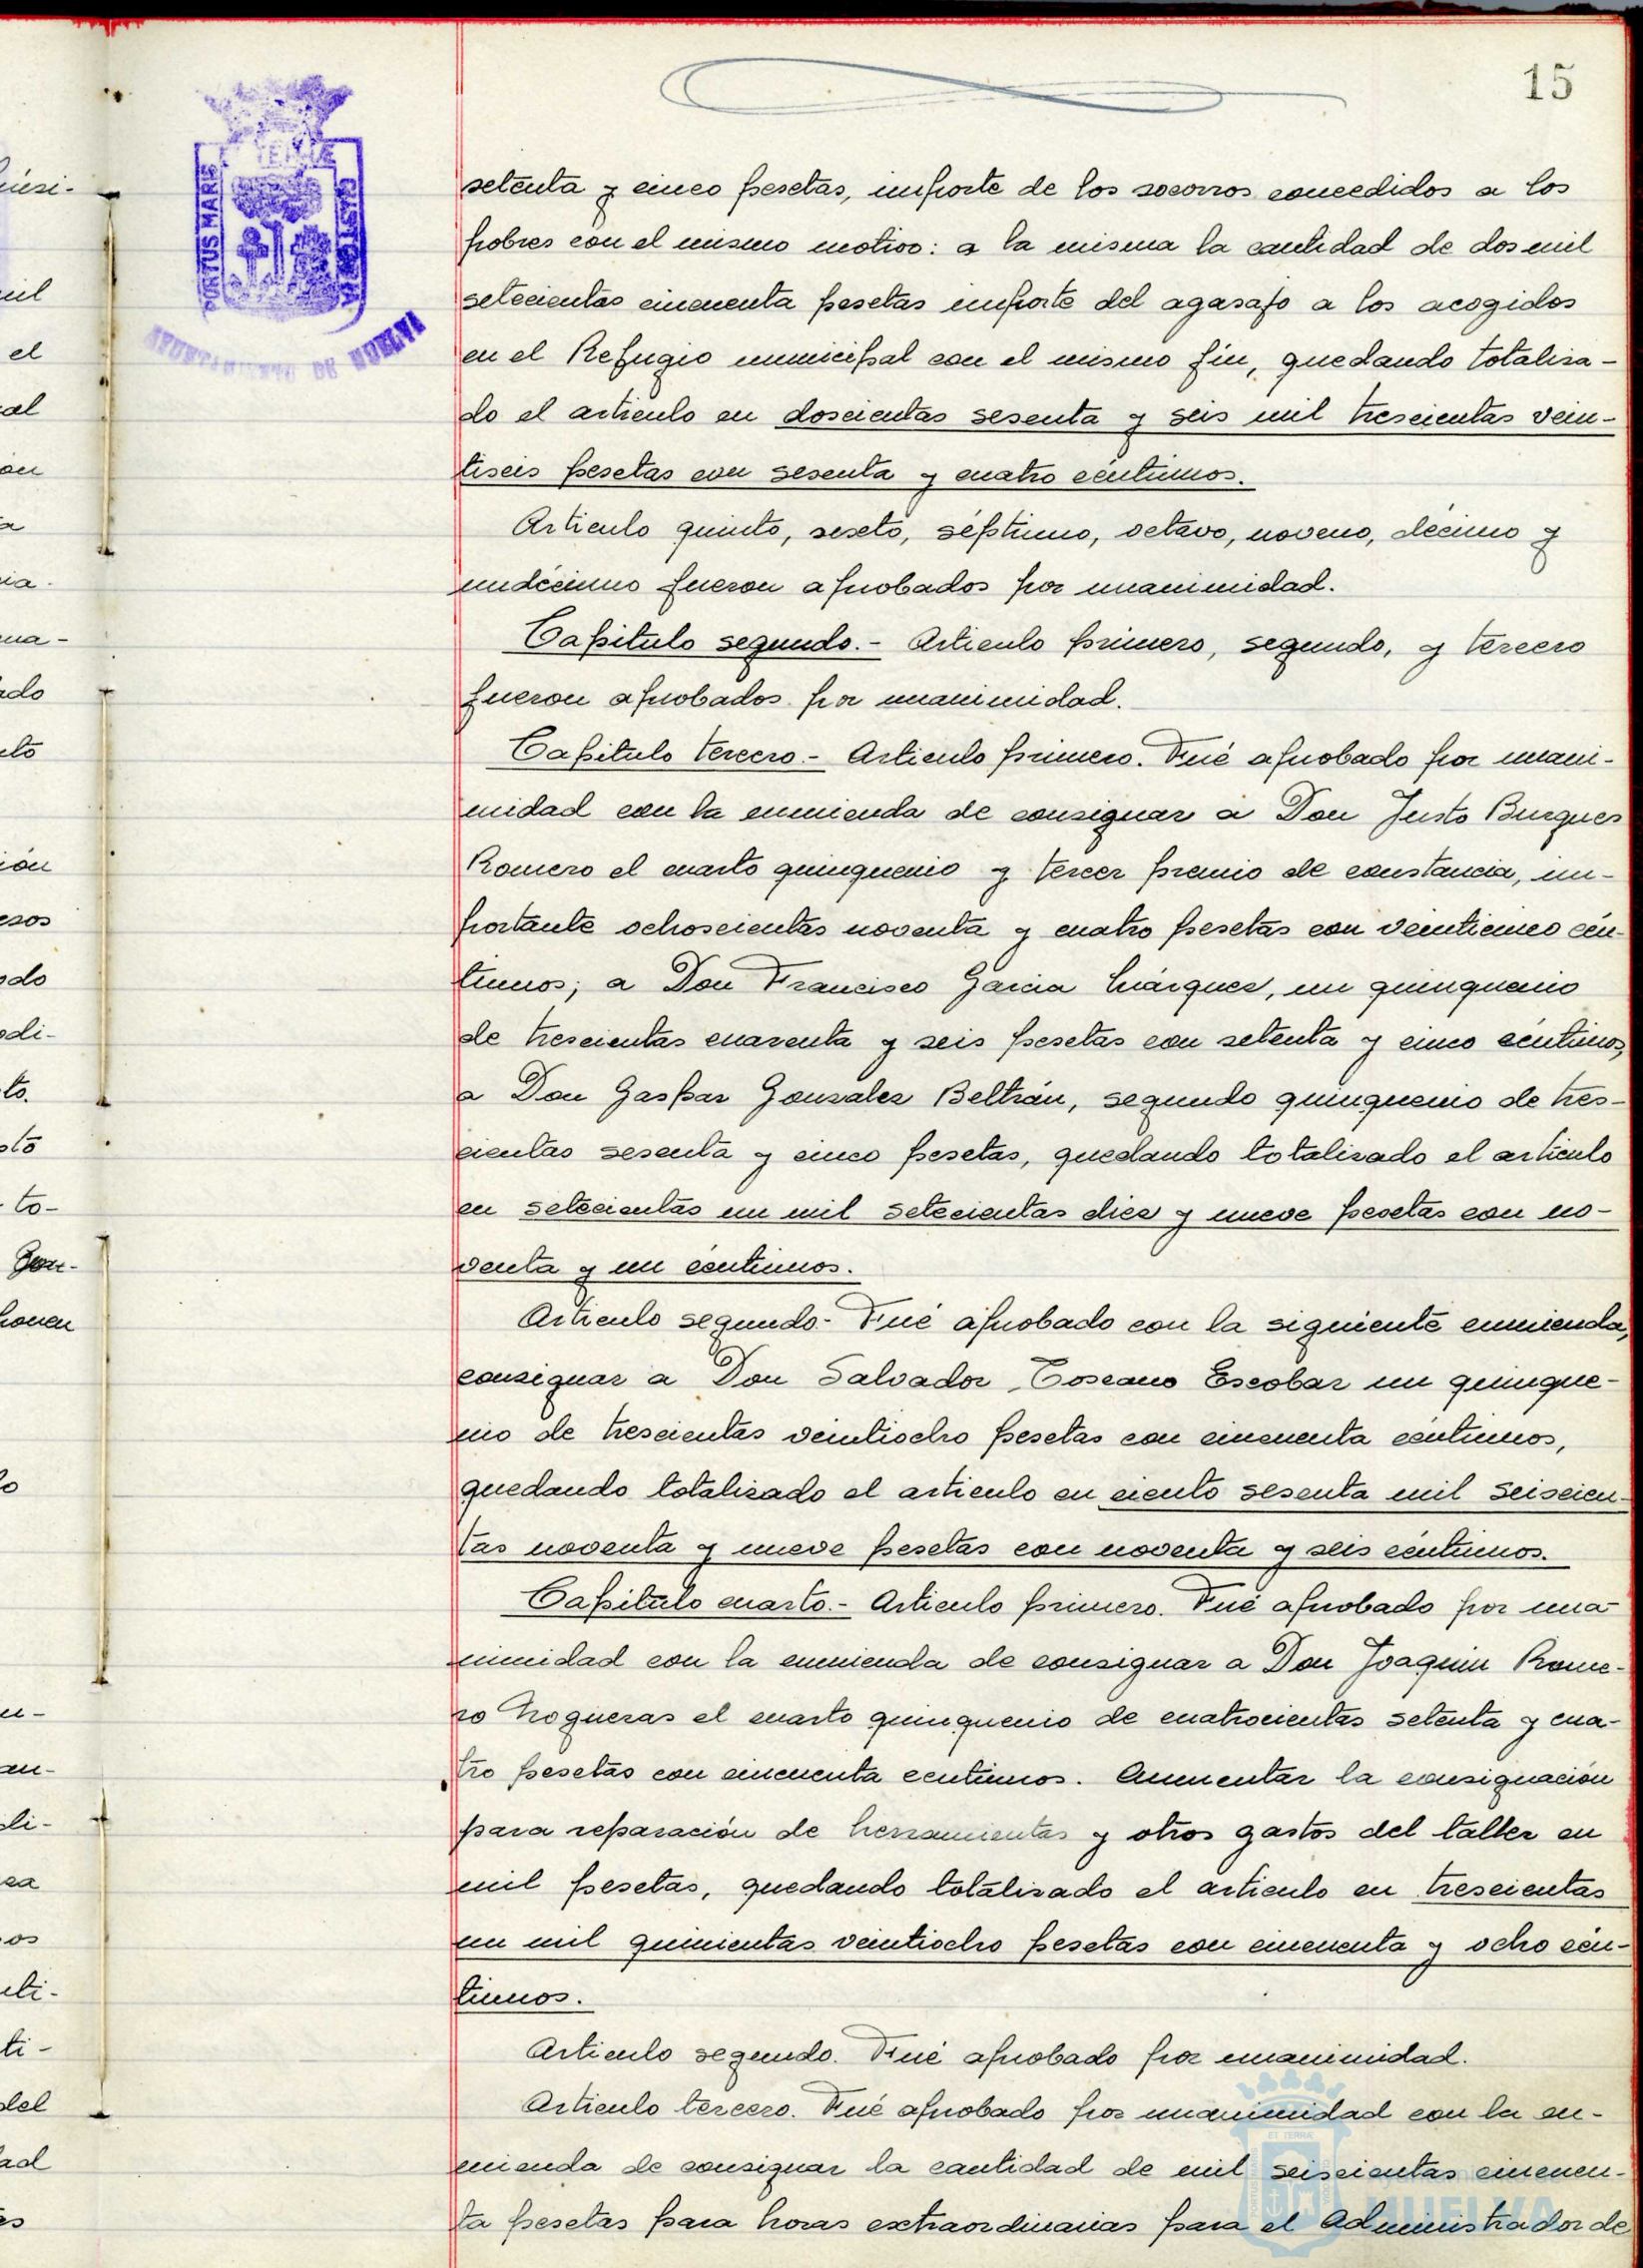 15
PORTUS MARIS
ET TERRAE
CUSTODIA
AYUNTAMIENTO DE HUELVA
setenta y cinco pesetas, importe de los socorros concedidos a los
pobres con el mismo motivo: a la misma la cantidad de dos mil
setecientas cincuenta pesetas importe del agasajo a los acogidos
en el Refugio municipal con el mismo fin, quedando totaliza-
do el articulo en doscientas sesenta y seis mil trescientas vein-
tiseis pesetas con sesenta y cuatro céntimos.
Articulo quinto, sexto, séptimo, octavo, noveno, décimo y
undécimo fueron aprobados por unanimidad.
Capitulo segundo.- Articulo primero, segundo, y tercero
fueron aprobados por unanimidad.
Capitulo tercero.- Articulo primero. Fué aprobado por unani-
midad con la enmienda de consignar a Don Justo Burgues
Romero el cuarto quinquenio y tercer premio de constancia, im-
portante ochoscientas noventa y cuatro pesetas con veinticinco cén-
timos; a Don Francisco Garcia Márquez, un quinquenio
de trescientas cuarenta y seis pesetas con setenta y cinco céntimos,
a Don Gaspar Gonzalez Beltrán, segundo quinquenio de tres-
cientas sesenta y cinco pesetas, quedando totalizado el articulo
en setecientas un mil setecientas diez y nueve pesetas con no-
venta y un céntimos.
Articulo segundo.- Fué aprobado con la siguiente enmienda,
consignar a Don Salvador Toscano Escobar un quinque-
nio de trescientas veintiocho pesetas con cincuenta céntimos,
quedando totalizado el articulo en ciento sesenta mil seiscien-
tas noventa y nueve pesetas con noventa y seis céntimos.
Capitulo cuarto.- Articulo primero. Fué aprobado por una-
nimidad con la enmienda de consignar a Don Joaquin Rome-
ro Nogueras el cuarto quinquenio de cuatrocientas setenta y cua-
tro pesetas con cincuenta centimos. Aumentar la consignación
para reparación de herramientas y otros gastos del taller en
mil pesetas, quedando totalizado el articulo en trescientas
un mil quinientas veintiocho pesetas con cincuenta y ocho cén-
timos.
Articulo segundo. Fué aprobado por unanimidad.
Articulo tercero. Fué aprobado por unanimidad con la en-
mienda de consignar la cantidad de mil seiscientas cincuen-
ta pesetas para horas extraordinarias para el Administrador de
HUELVA